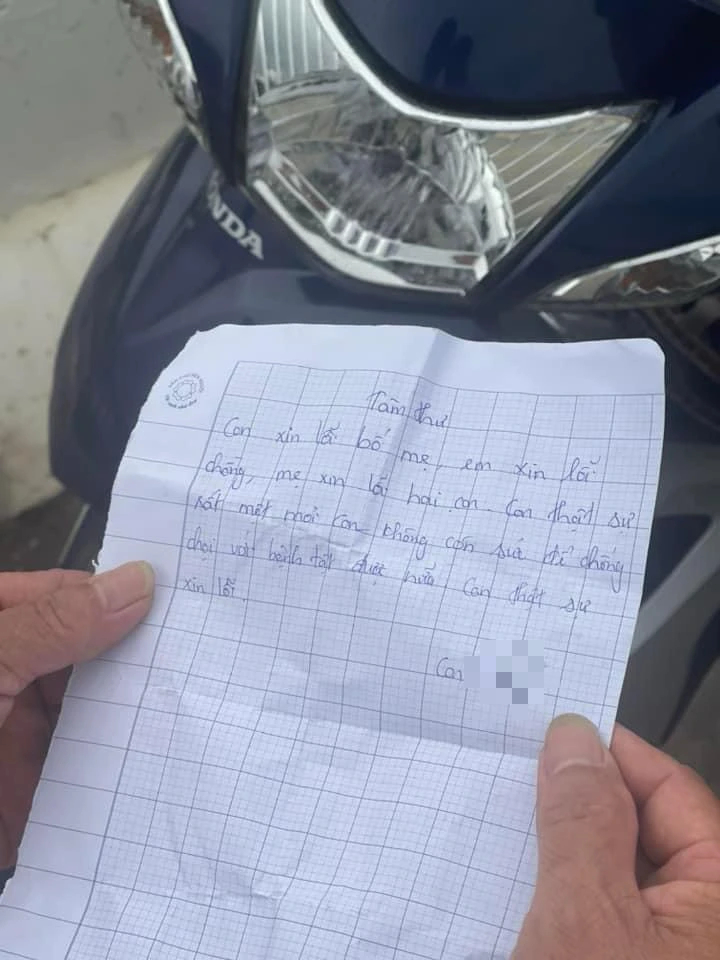 HONDA
Tâm thư
Con xin lỗi bố mẹ, em xin lỗi
chồng, mẹ xin lỗi hai con. Con thật sự
rất mệt mỏi con không còn sức để chống
chọi với bệnh tật được nữa. Con thật sự
xin lỗi.
Con